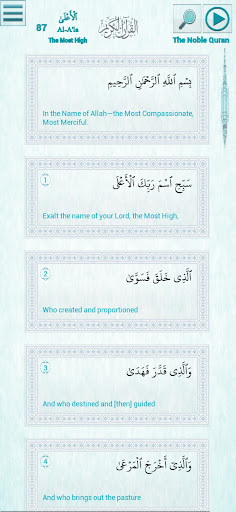 87
الأعلى
Al-A'la
The Most High
القرآن الكريم
The Noble Quran
بِسْمِ ٱللَّهِ ٱلرَّحْمَٰنِ ٱلرَّحِيمِ
In the Name of Allah—the Most Compassionate,
Most Merciful.
1
سَبِّحِ ٱسْمَ رَبِّكَ ٱلْأَعْلَى
Exalt the name of your Lord, the Most High,
2
ٱلَّذِى خَلَقَ فَسَوَّىٰ
Who created and proportioned
3
وَٱلَّذِى قَدَّرَ فَهَدَىٰ
And who destined and [then] guided
4
وَٱلَّذِىٓ أَخْرَجَ ٱلْمَرْعَىٰ
And who brings out the pasture